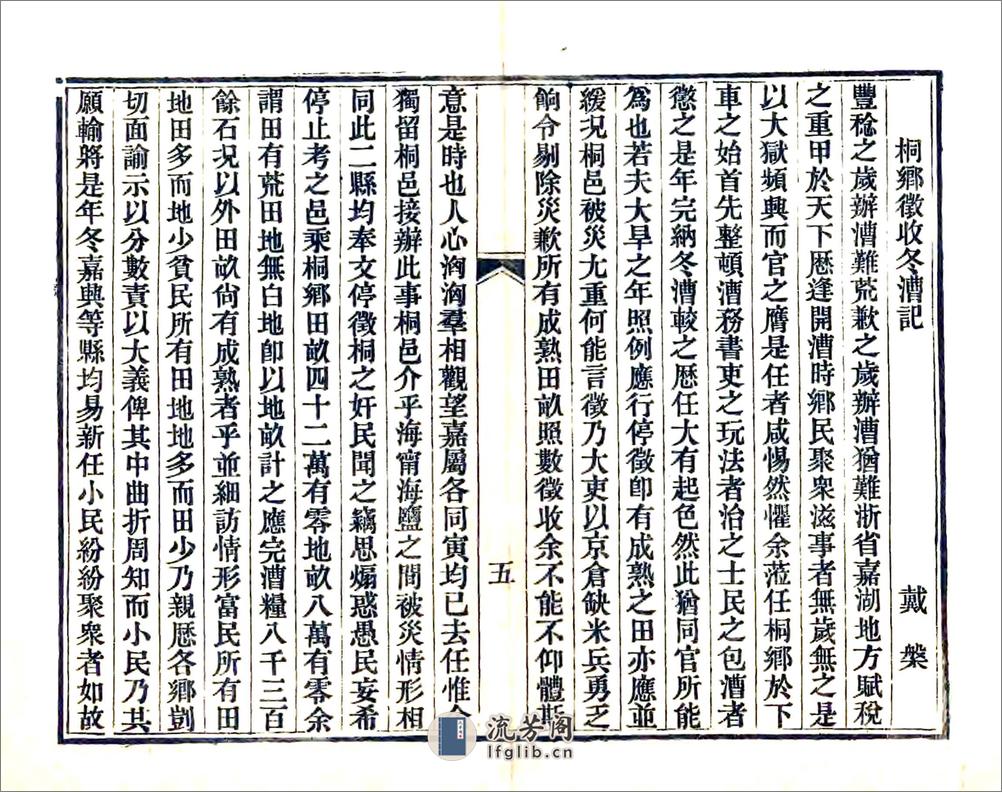 桐鄉徵收冬漕記 戴槃
豐稔之歲辦漕難荒歉之歲辦漕猶難浙省嘉湖地方賦稅
之重甲於天下歷逢開漕時鄉民聚衆滋事者無歲無之是
以大獄頻興而官之膺是任者咸惕然懼余蒞任桐鄉於下
車之始首先整頓漕務書吏之玩法者治之士民之包漕者
懲之是年完納冬漕較之歷任大有起色然此猶同官所能
爲也若夫大旱之年照例應行停徵卽有成熟之田亦應並
緩况桐邑被災尤重何能言徵乃大吏以京倉缺米兵勇乏
餉令剔除災歉所有成熟田畝照數徵收余不能不仰體斯
五
意是時也人心洶洶羣相觀望嘉屬各同寅均已去任惟余
獨留桐邑接辦此事桐邑介乎海甯海鹽之間被災情形相
同此二縣均奉文停徵桐之奸民聞之竊思煽惑愚民妄希
停止考之邑乘桐鄉田畝四十二萬有零地畝八萬有零余
謂田有荒田地無白地卽以地畝計之應完漕糧八千三百
餘石况以外田畝尙有成熟者乎並細訪情形富民所有田
地田多而地少貧民所有田地地多而田少乃親歷各鄉剴
切面諭示以分數責以大義俾其中曲折周知而小民乃其
願輸將是年冬嘉興等縣均易新任小民紛紛聚衆者如故
流芳閣
lfglib.cn